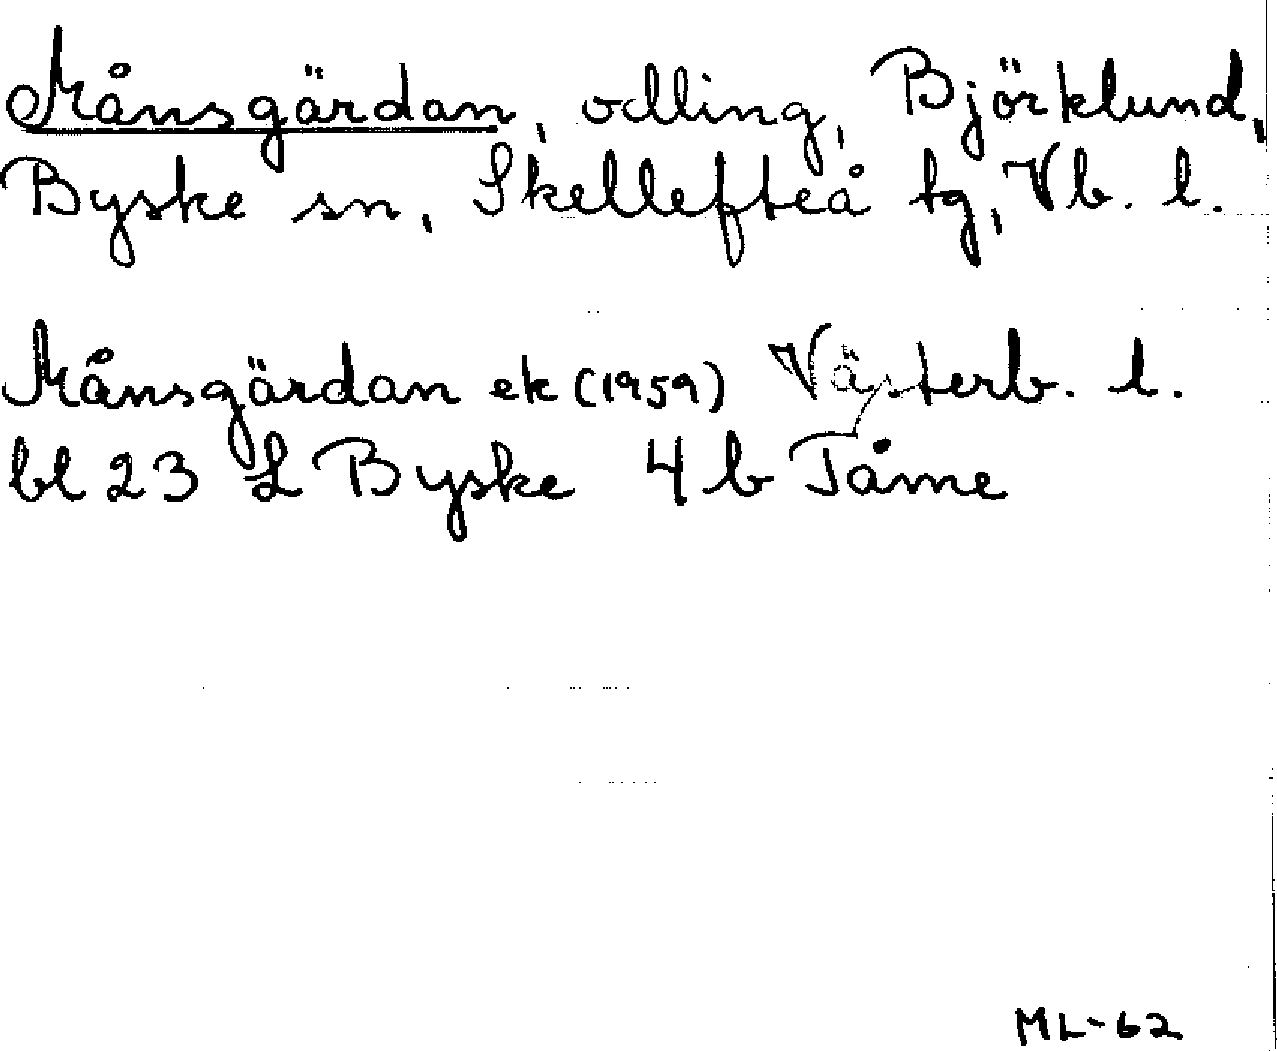 Månsgärdan, odling, Björklund,
Byske sn, Skellefteå tg, Vb. l.
Månsgärdan ek (1959) Västerb. l.
bl 23 L Byske 4 b Tåme
ML-62